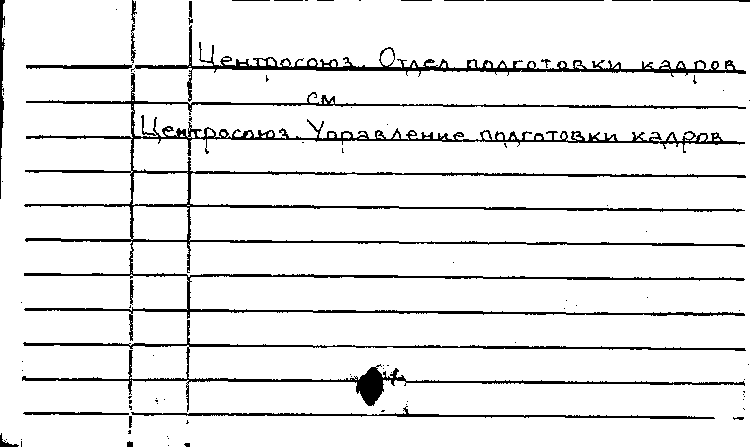 Центросоюз. Отдел подготовки кадров
см
Центросоюз. Управление подготовки кадров